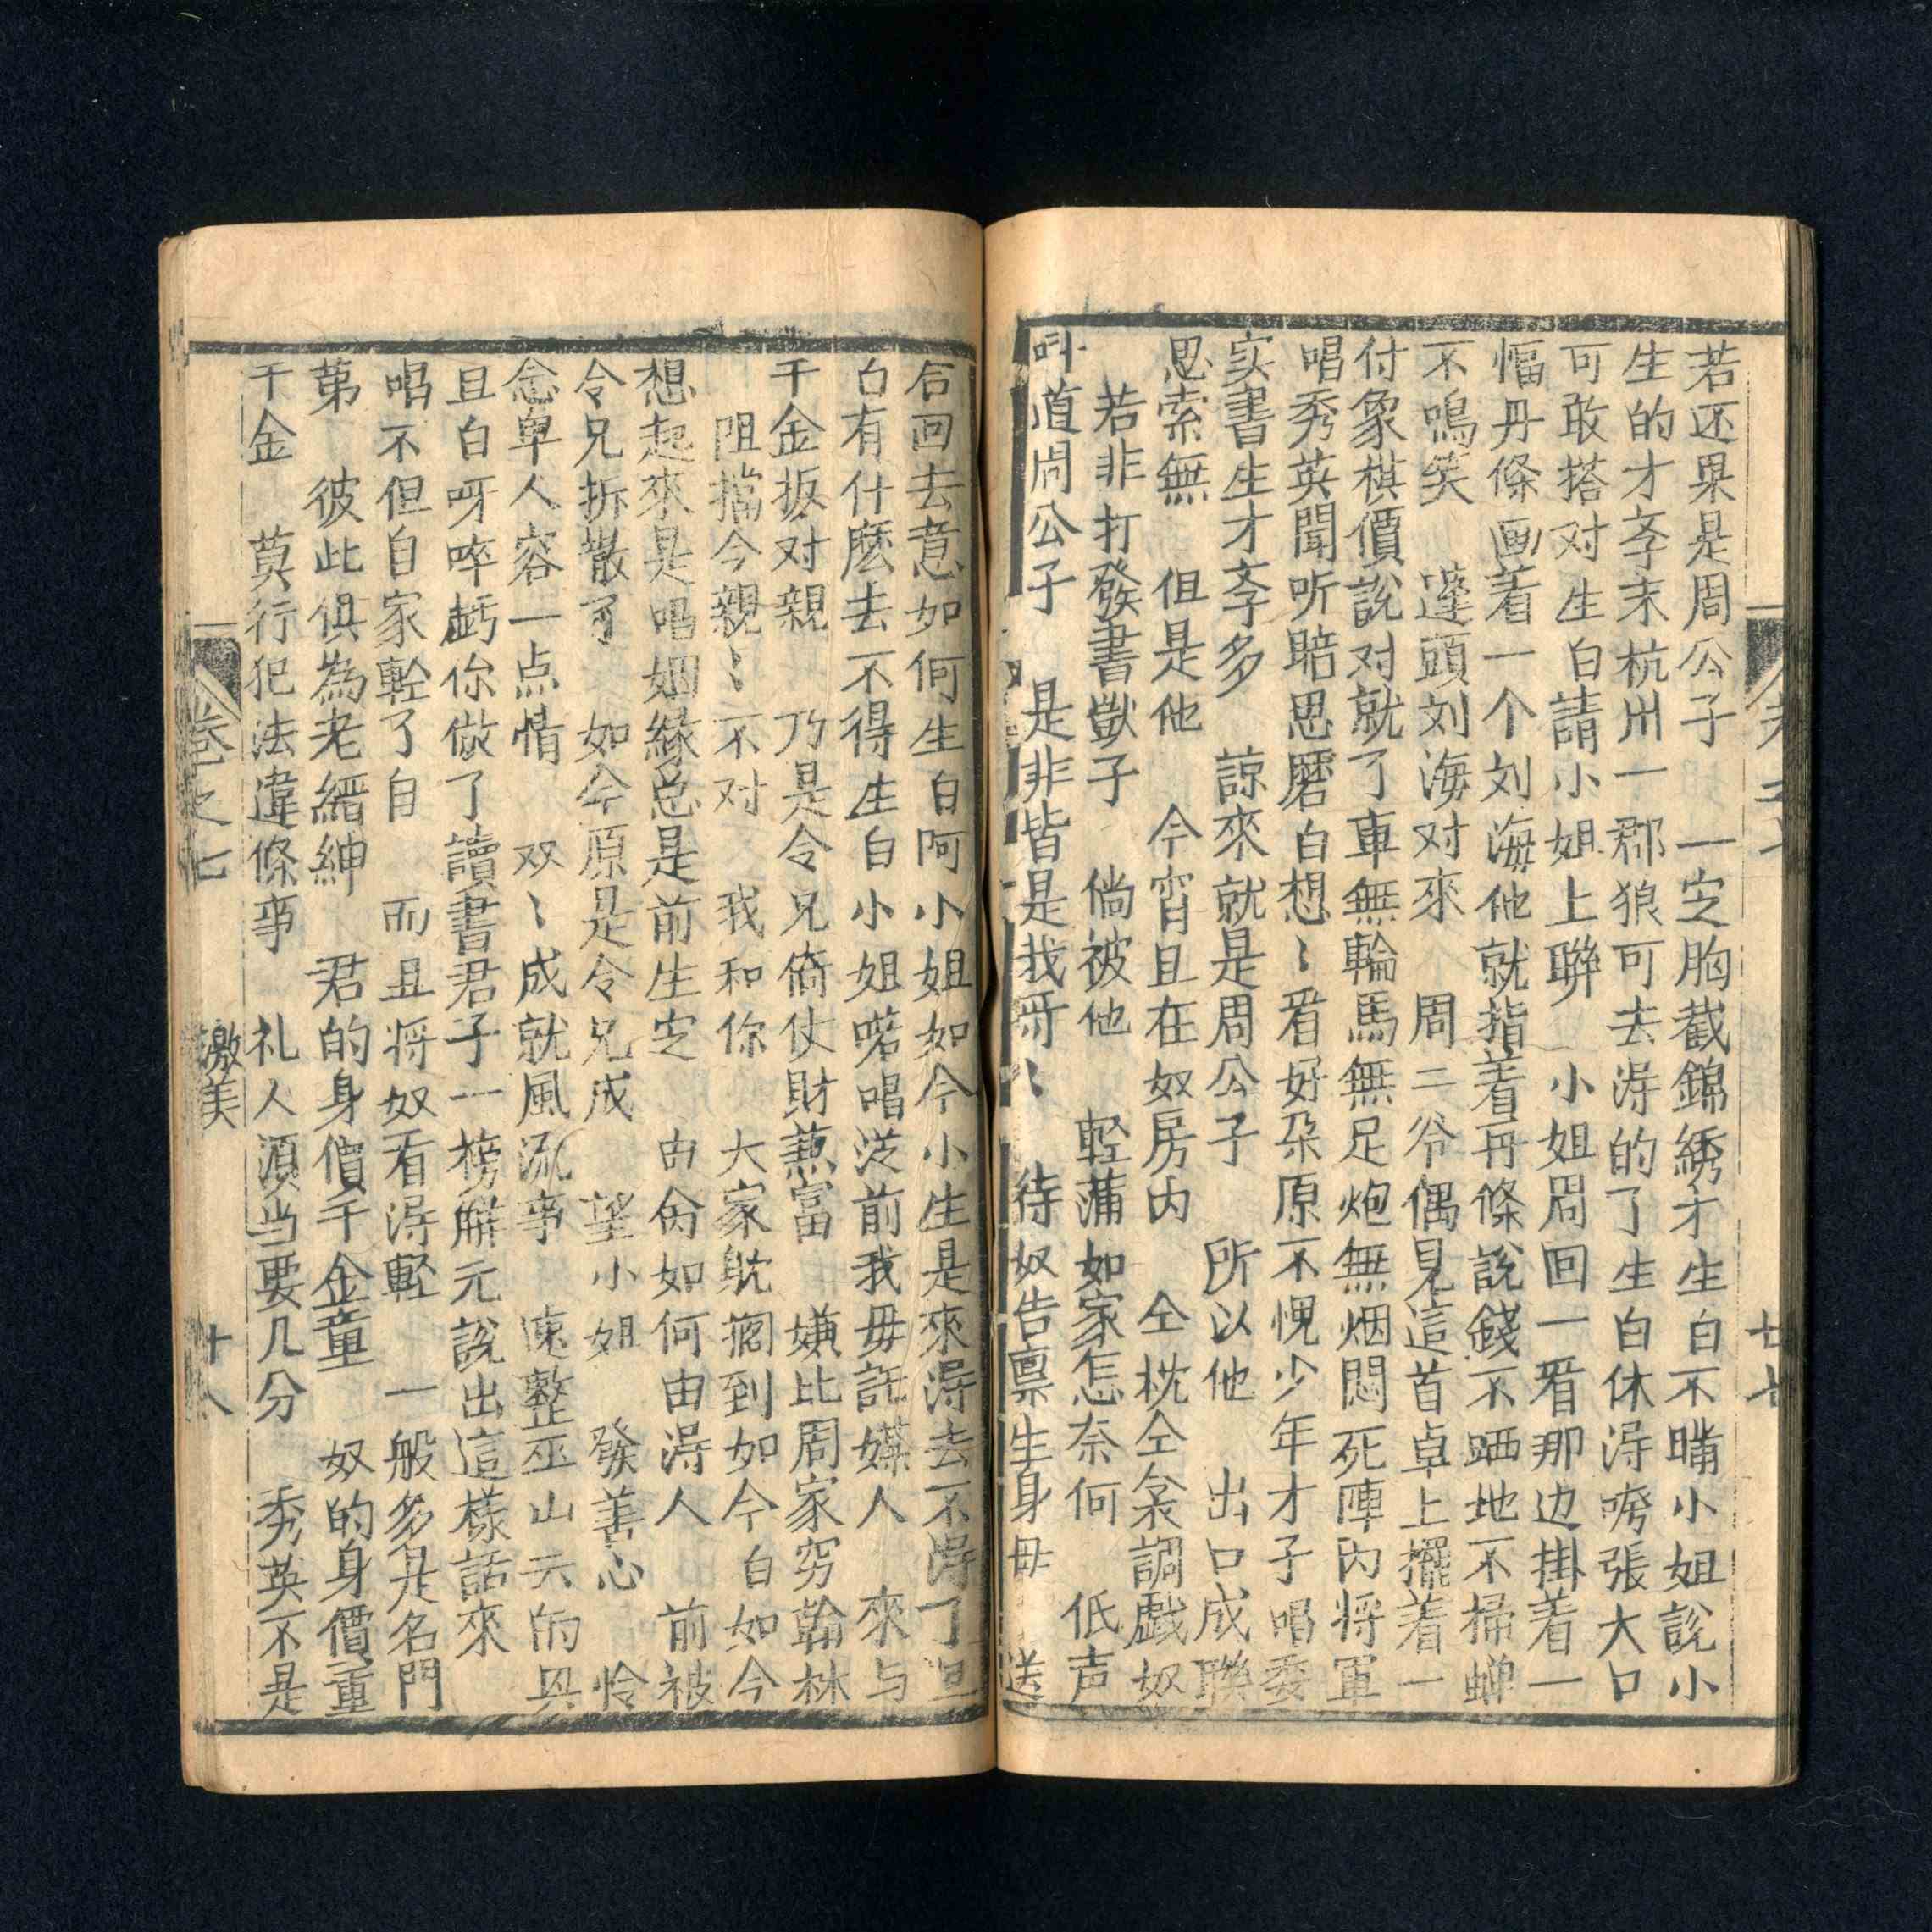 若还果是周公子　一定胸截錦綉才生白不瞒小姐說小
生的才斈末杭州一郡狼可去淂的了生白休淂夸張大口
可敢搭对生白請小姐上聯　小姐周回一看那边掛着一
幅丹條画着一个刘海他就指着丹條說錢不晒地不掃蟬
不鳴笑　蓬頭刘海对來　周二爷偶見這首卓上擺着一
付象棋價說对就了車無輪馬無足炮無烟悶死陣內将軍
唱秀英聞听賠思磨白想〻看好朶原不愧少年才子唱委
实書生才斈多　諒來就是周公子　所以他　出口成聯
思索無　但是他　今宵且在奴房內　仝枕仝衾調戲奴
若非打發書獃子　倘被他　輕蒲如家怎奈何　低声
叫道周公子　是非皆是我所〻　待奴告禀生身母　送
合回去意如何生白阿小姐如今小生是來淂去不淂了
白有什麽去不得生白小姐喏唱从前我毋託媒人　來与
千金扳对親　乃是令兄倚仗財蕉富　嫌比周家穷翰林
阻擋今親〻不对　我和你　大家躭擱到如今白如今
想起來是唱姻緣总是前生定　由命如何由淂人　前被
令兄拆散了　如今原是令兄成　望小姐　發善心　怜
念卑人容一点情　双〻成就風流亊　速整巫山云的具
且白呀啐虧你做了讀書君子一榜解元說出這樣話來
唱不但自家輕了自　而且将奴看淂輕　一般多是名門
第　彼此俱為老縉紳　君的身價千金重　奴的身價重
千金　莫行犯法違條亊　礼人須当要几分　秀英不是
卷之七
激美
十八
廿七